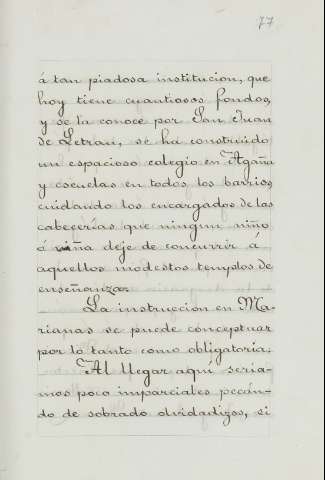 77
á tan piadosa institucion, que
hoy tiene cuantiosos fondos,
y se la conoce por San Juan
de Letran, se ha construido
un espacioso colegio en Agaña
y escuelas en todos los barrios,
cuidando los encargados de las
cabecerías que ningun niño
ó niña deje de concurrir á
aquellos modestos templos de
enseñanza.
La instruccion en Ma-
rianas se puede conceptuar
por lo tanto como obligatoria.
Al llegar aquí seria-
mos poco imparciales pecán-
do de sobrado olvidadizos, si